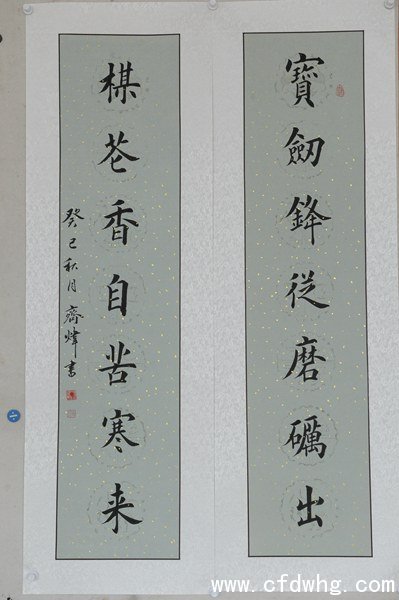 寶劒鋒從磨礪出
楳花香自苦寒来
癸巳秋月齊煒書
十
www.cfdwhg.com